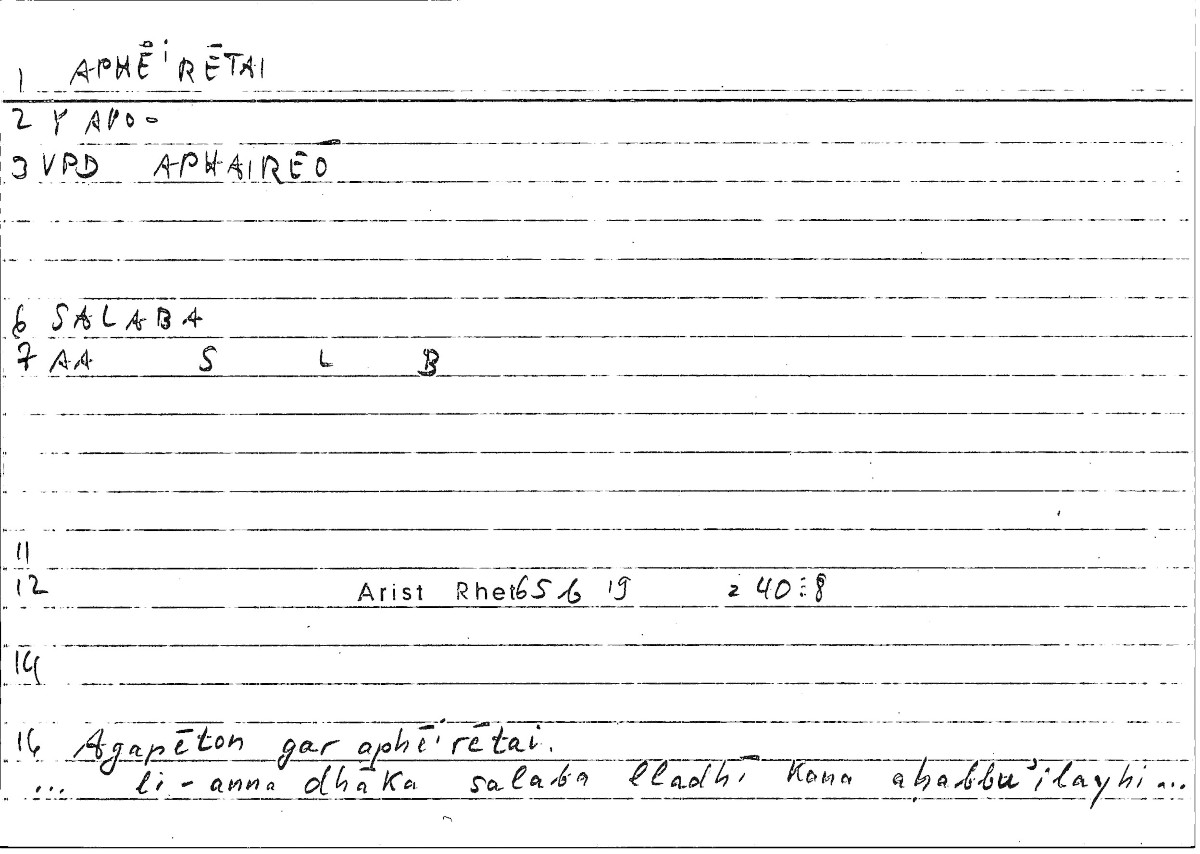 1 APHĒiRĒTAI
2 Y APO-
3 VPD APHAIREŌ
6 SALABA
7 AA S L B
11
12 Arist Rhet 65 b 19 2 40:8
14
16 Agapēton gar aphēirētai.
... li-anna dhāka salaba lladhī kana aḥabbu ʾilayhi ...